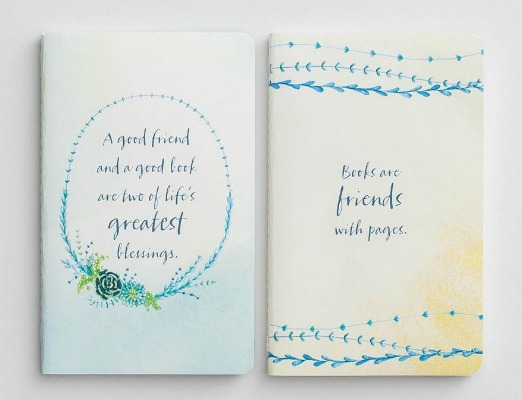 A good friend
and a good book
are two of life's
greatest
blessings.
Books are
friends
with pages.